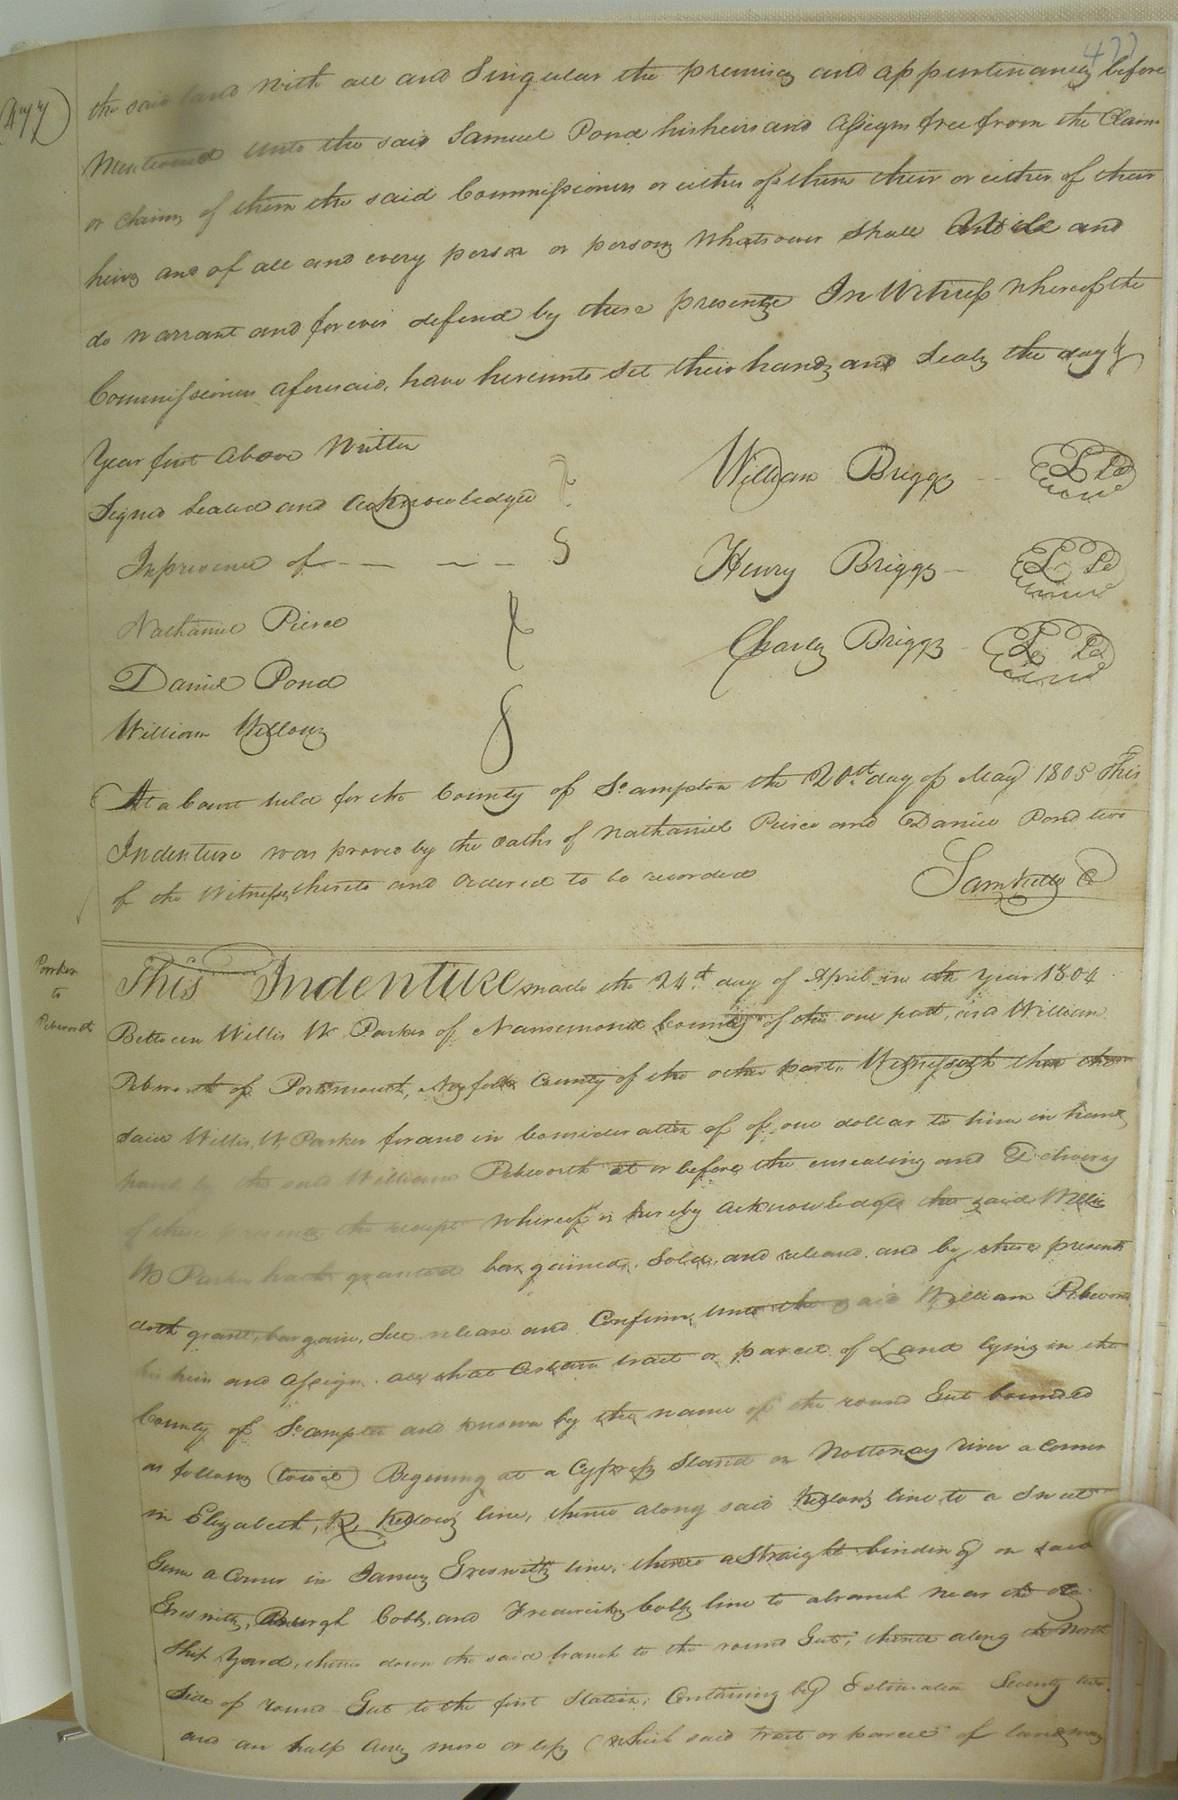 477
the said land with all and Singular the premises and appurtinances before
Mentioned unto the said Samuel Pond his heirs and assigns free from the Claim
or claims of them the said Commissioners or either of them their or either of their
heirs and of all and every person or persons Whatsoever shall and
do warrant and forever defend by these presents In Witness whereof the
Commissioners aforesaid, have hereunto set their hands and seals the day &
Year first above Written
Signed Sealed and acknowledged
In presence of
Nathaniel Pierce
Daniel Pond
William
William Briggs LS
Henry Briggs LS
Charles Briggs LS
At a Court held for the County of So. ampton the 20th day of May 1805 This
Indenture was proved by the oaths of Nathaniel Pierce and Daniel Pond two
of the Witnesses thereto and ordered to be recorded
Sam Kello C
Parker
to
Pebworth
This Indenture made the 24th day of April in the Year 1804
Between Willis W Parker of Nansemond County of the one part, and William
Pebworth of Portsmouth, Norfolk County of the other part, Witnesseth that the
said Willis, W Parker for and in Consideration of of one dollar to him in hand
paid by the said William Pebworth at or before the ensealing and Delivery
of these presents the receipt whereof is hereby acknowledged the said Willis
W Parker hath granted bargained, Sold, and released and by these presents
doth grant, bargain, Sell release and Confirm unto the said William Pebworth
his heirs and assigns all that certain tract or parcel of Land lying in the
County of So. ampton and known by the name of the round Gut bounded
as follows (towit) Begining at a Cypress Stand on Nottoway river a corner
in Elizabeth, R, line, thence along said line to a Sweet
Gum a corner in James line, thence a straight binding on said
Cobbs, and Fredericks Cobbs line to a branch near the old
Ship Yard, thence down the said branch to the round Gut, thence along the North
Side of round Gut to the first Station; Containing by Estimation Seventy two
and an half acres more or less (which said tract or parcel of land may